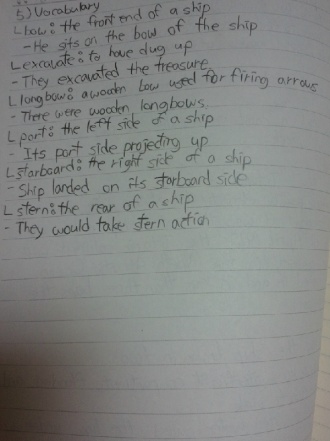 5) Vocabulary
L bow: the front end of a ship
- He sits on the bow of the ship
L excavate: to have dug up
- They excavated the treasure
L longbow: a wooden bow used for firing arrows
- There were wooden longbows.
L port: the left side of a ship
- Its port side projecting up
L starboard: the right side of a ship
- Ship landed on its starboard side
L stern: the rear of a ship
- They would take stern action